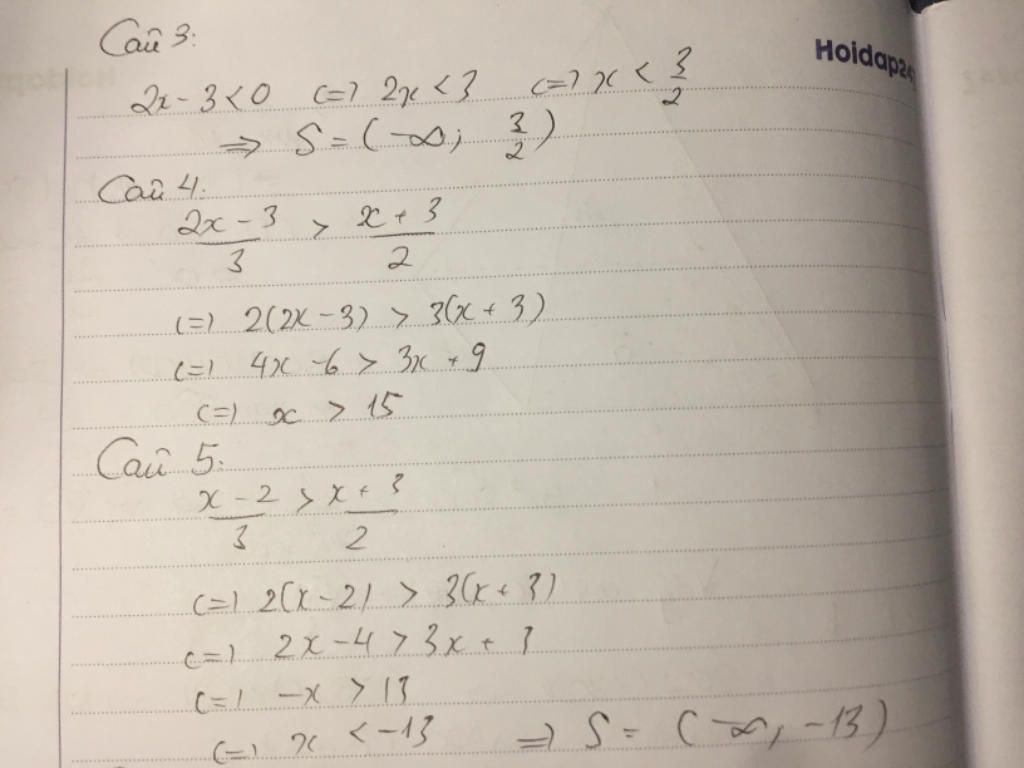 Câu 3:
Hoidap247
2x - 3 < 0 <=> 2x < 3 <=> x < 3/2
=> S = (-∞; 3/2)
Câu 4:
2x - 3 / 3 > x + 3 / 2
<=> 2(2x - 3) > 3(x + 3)
<=> 4x - 6 > 3x + 9
<=> x > 15
Câu 5:
x - 2 / 3 > x + 3 / 2
<=> 2(x - 2) > 3(x + 3)
<=> 2x - 4 > 3x + 3
<=> -x > 13
<=> x < -13 => S = (-∞, -13)